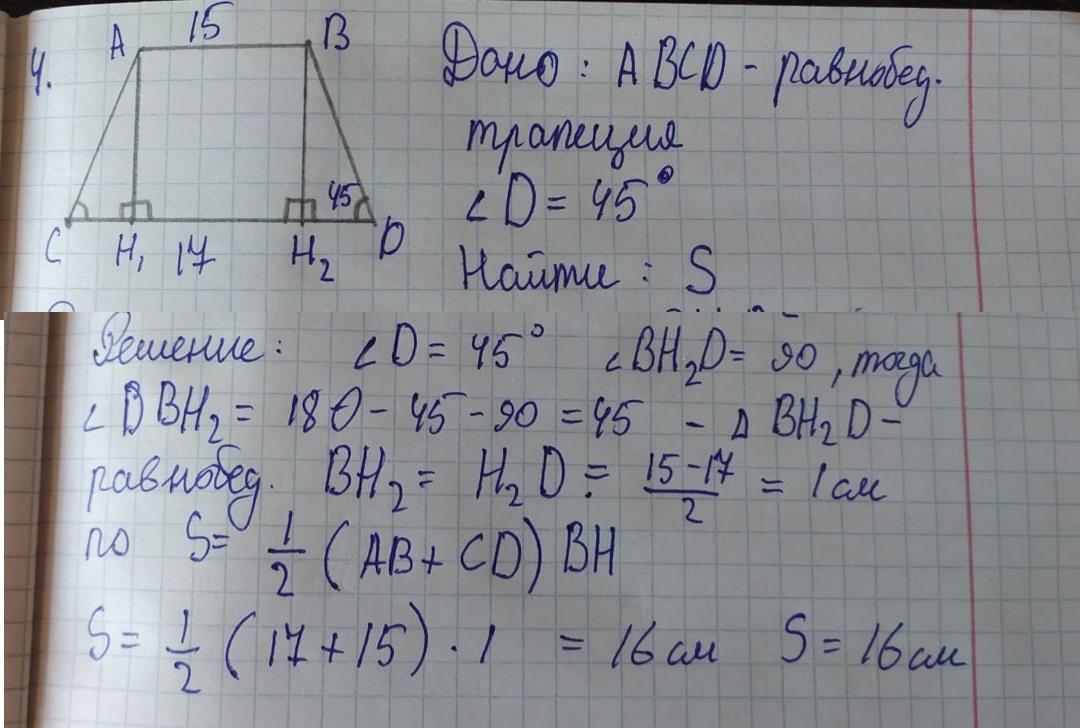 4.
A 15 B
45
C H₁ 17 H₂ D
Дано: ABCD - равнобед.
трапеция
∠D = 45°
Найти: S
Решение: ∠D = 45° ∠BH₂D = 90, тогда
∠DBH₂ = 180 - 45 - 90 = 45 - Δ BH₂D -
равнобед. BH₂ = H₂D = \frac{15-17}{2} = 1см
по S= \frac{1}{2} (AB + CD) BH
S = \frac{1}{2} (17 + 15) · 1 = 16 см S = 16 см